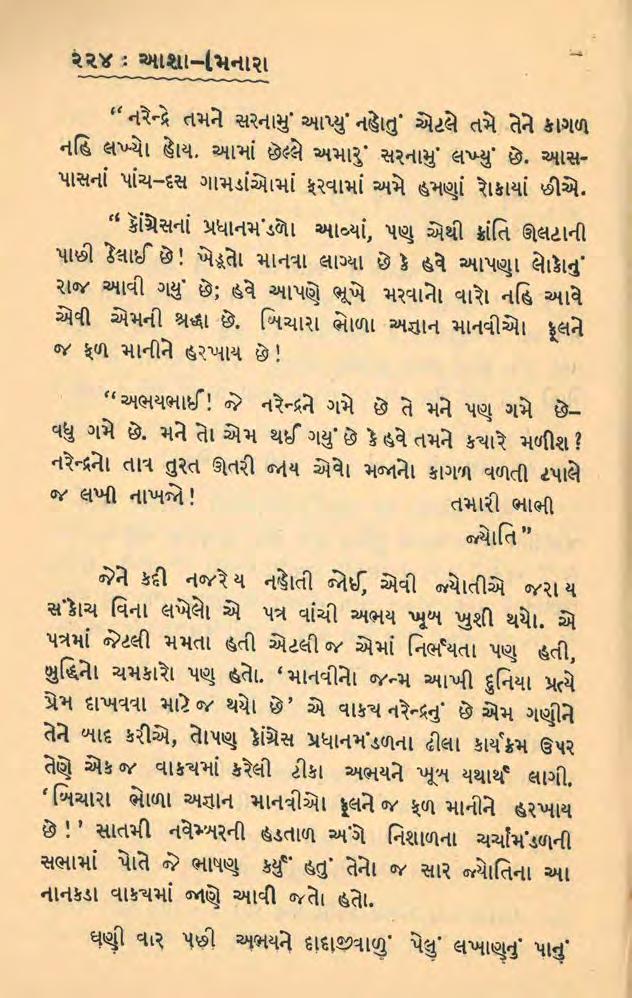 ૨૨૪ : આશા-મિનારા
“ નરેન્દ્રે તમને સરનામું આપ્યું નહોતું એટલે તમે તેને કાગળ
નહિ લખ્યો હોય. આમાં છેલ્લે અમારું સરનામું લખ્યું છે. આસ-
પાસનાં પાંચ-દસ ગામડાંઓમાં ફરવામાં અમે હમણાં રોકાયાં છીએ.
“ કોંગ્રેસનાં પ્રધાનમંડળો આવ્યાં, પણ એથી ક્રાંતિ ઊલટાની
પાછી ઠેલાઈ છે! ખેડૂતો માનવા લાગ્યા છે કે હવે આપણા લોકોનું
રાજ આવી ગયું છે; હવે આપણે ભૂખે મરવાનો વારો નહિ આવે
એવી એમની શ્રદ્ધા છે. બિચારા ભોળા અજ્ઞાન માનવીઓ ફૂલને
જ ફળ માનીને હરખાય છે!
“અભયભાઈ! જે નરેન્દ્રને ગમે છે તે મને પણ ગમે છે–
વધુ ગમે છે. મને તો એમ થઈ ગયું છે કે હવે તમને કયારે મળીશ?
નરેન્દ્રનો તાવ તુરત ઊતરી જાય એવો મજાનો કાગળ વળતી ટપાલે
જ લખી નાખજો!
તમારી ભાભી
જ્યોતિ”
જેને કદી નજરેય નહોતી જોઈ, એવી જ્યોતીએ જરાય
સંકોચ વિના લખેલો એ પત્ર વાંચી અભય ખૂબ ખુશી થયો. એ
પત્રમાં જેટલી મમતા હતી એટલી જ એમાં નિર્ભયતા પણ હતી,
બુદ્ધિનો ચમકારો પણ હતો. ‘માનવીનો જન્મ આખી દુનિયા પ્રત્યે
પ્રેમ દાખવવા માટે જ થયો છે’ એ વાકય નરેન્દ્રનું છે એમ ગણીને
તેને બાદ કરીએ, તોપણ કોંગ્રેસ પ્રધાનમંડળના ઢીલા કાર્યક્રમ ઉપર
તેણે એક જ વાકયમાં કરેલી ટીકા અભયને ખૂબ યથાર્થ લાગી.
‘બિચારા ભોળા અજ્ઞાન માનવીઓ ફૂલને જ ફળ માનીને હરખાય
છે!’ સાતમી નવેમ્બરની હડતાળ અંગે નિશાળના ચર્ચામંડળની
સભામાં પોતે જે ભાષણ કર્યું હતું તેનો જ સાર જ્યોતિના આ
નાનકડા વાકયમાં જાણે આવી જતો હતો.
ઘણી વાર પછી અભયને દાદાજીવાળું પેલું લખાણનું પાનું